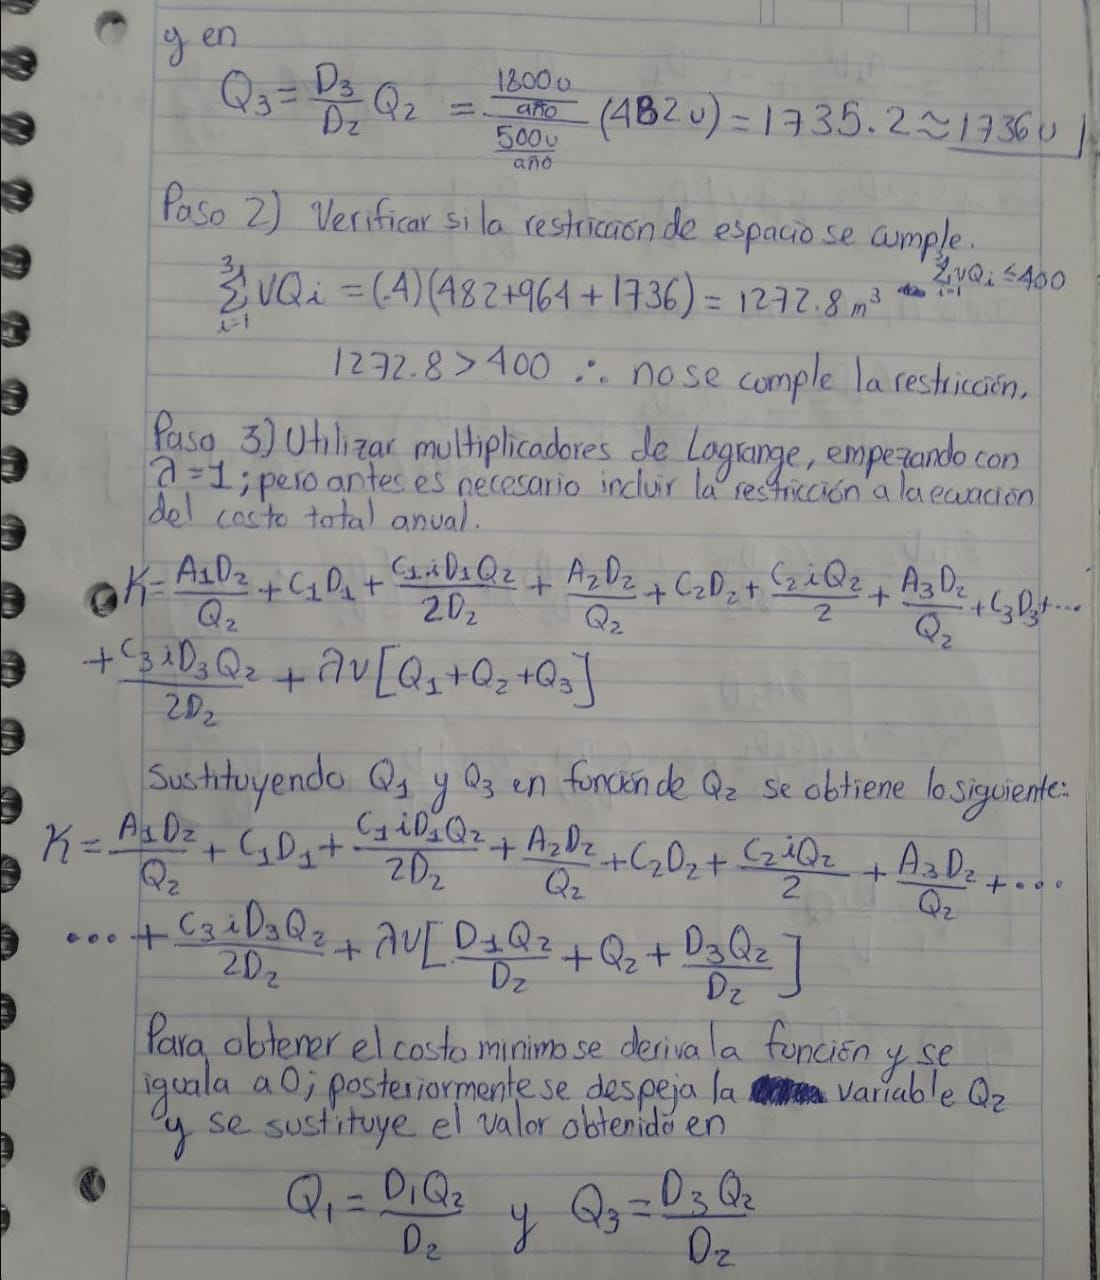 y en
Q₃ = D₃/D₂ Q₂ = (1800u/año)/(500u/año) (482u) = 1735.2 ≈ 1736u
Paso 2) Verificar si la restricción de espacio se cumple.
3∑i=1 VQi = (.4)(482+964+1736) = 1272.8 m³ 3∑i=1 VQi ≤ 400
1272.8 > 400 ∴ no se comple la restricción.
Paso 3) Utilizar multiplicadores de Lagrange, empezando con
λ=1; pero antes es necesario incluir la restricción a la ecuación
del costo total anual.
K = A₁D₂/Q₂ + C₁D₁ + C₁iD₁Q₂/2D₂ + A₂D₂/Q₂ + C₂D₂ + C₂iQ₂/2 + A₃D₂/Q₂ + C₃D₃ + ...
+ C₃iD₃Q₂/2D₂ + λv[Q₁+Q₂+Q₃]
Sustituyendo Q₁ y Q₃ en función de Q₂ se obtiene lo siguiente:
K = A₁D₂/Q₂ + C₁D₁ + C₁iD₁Q₂/2D₂ + A₂D₂/Q₂ + C₂D₂ + C₂iQ₂/2 + A₃D₂/Q₂ + ...
... + C₃iD₃Q₂/2D₂ + λv[D₁Q₂/D₂ + Q₂ + D₃Q₂/D₂]
Para obtener el costo minimo se deriva la función y se
iguala a 0; posteriormente se despeja la variable Q₂
y se sustituye el valor obtenido en
Q₁ = D₁Q₂/D₂ y Q₃ = D₃Q₂/D₂